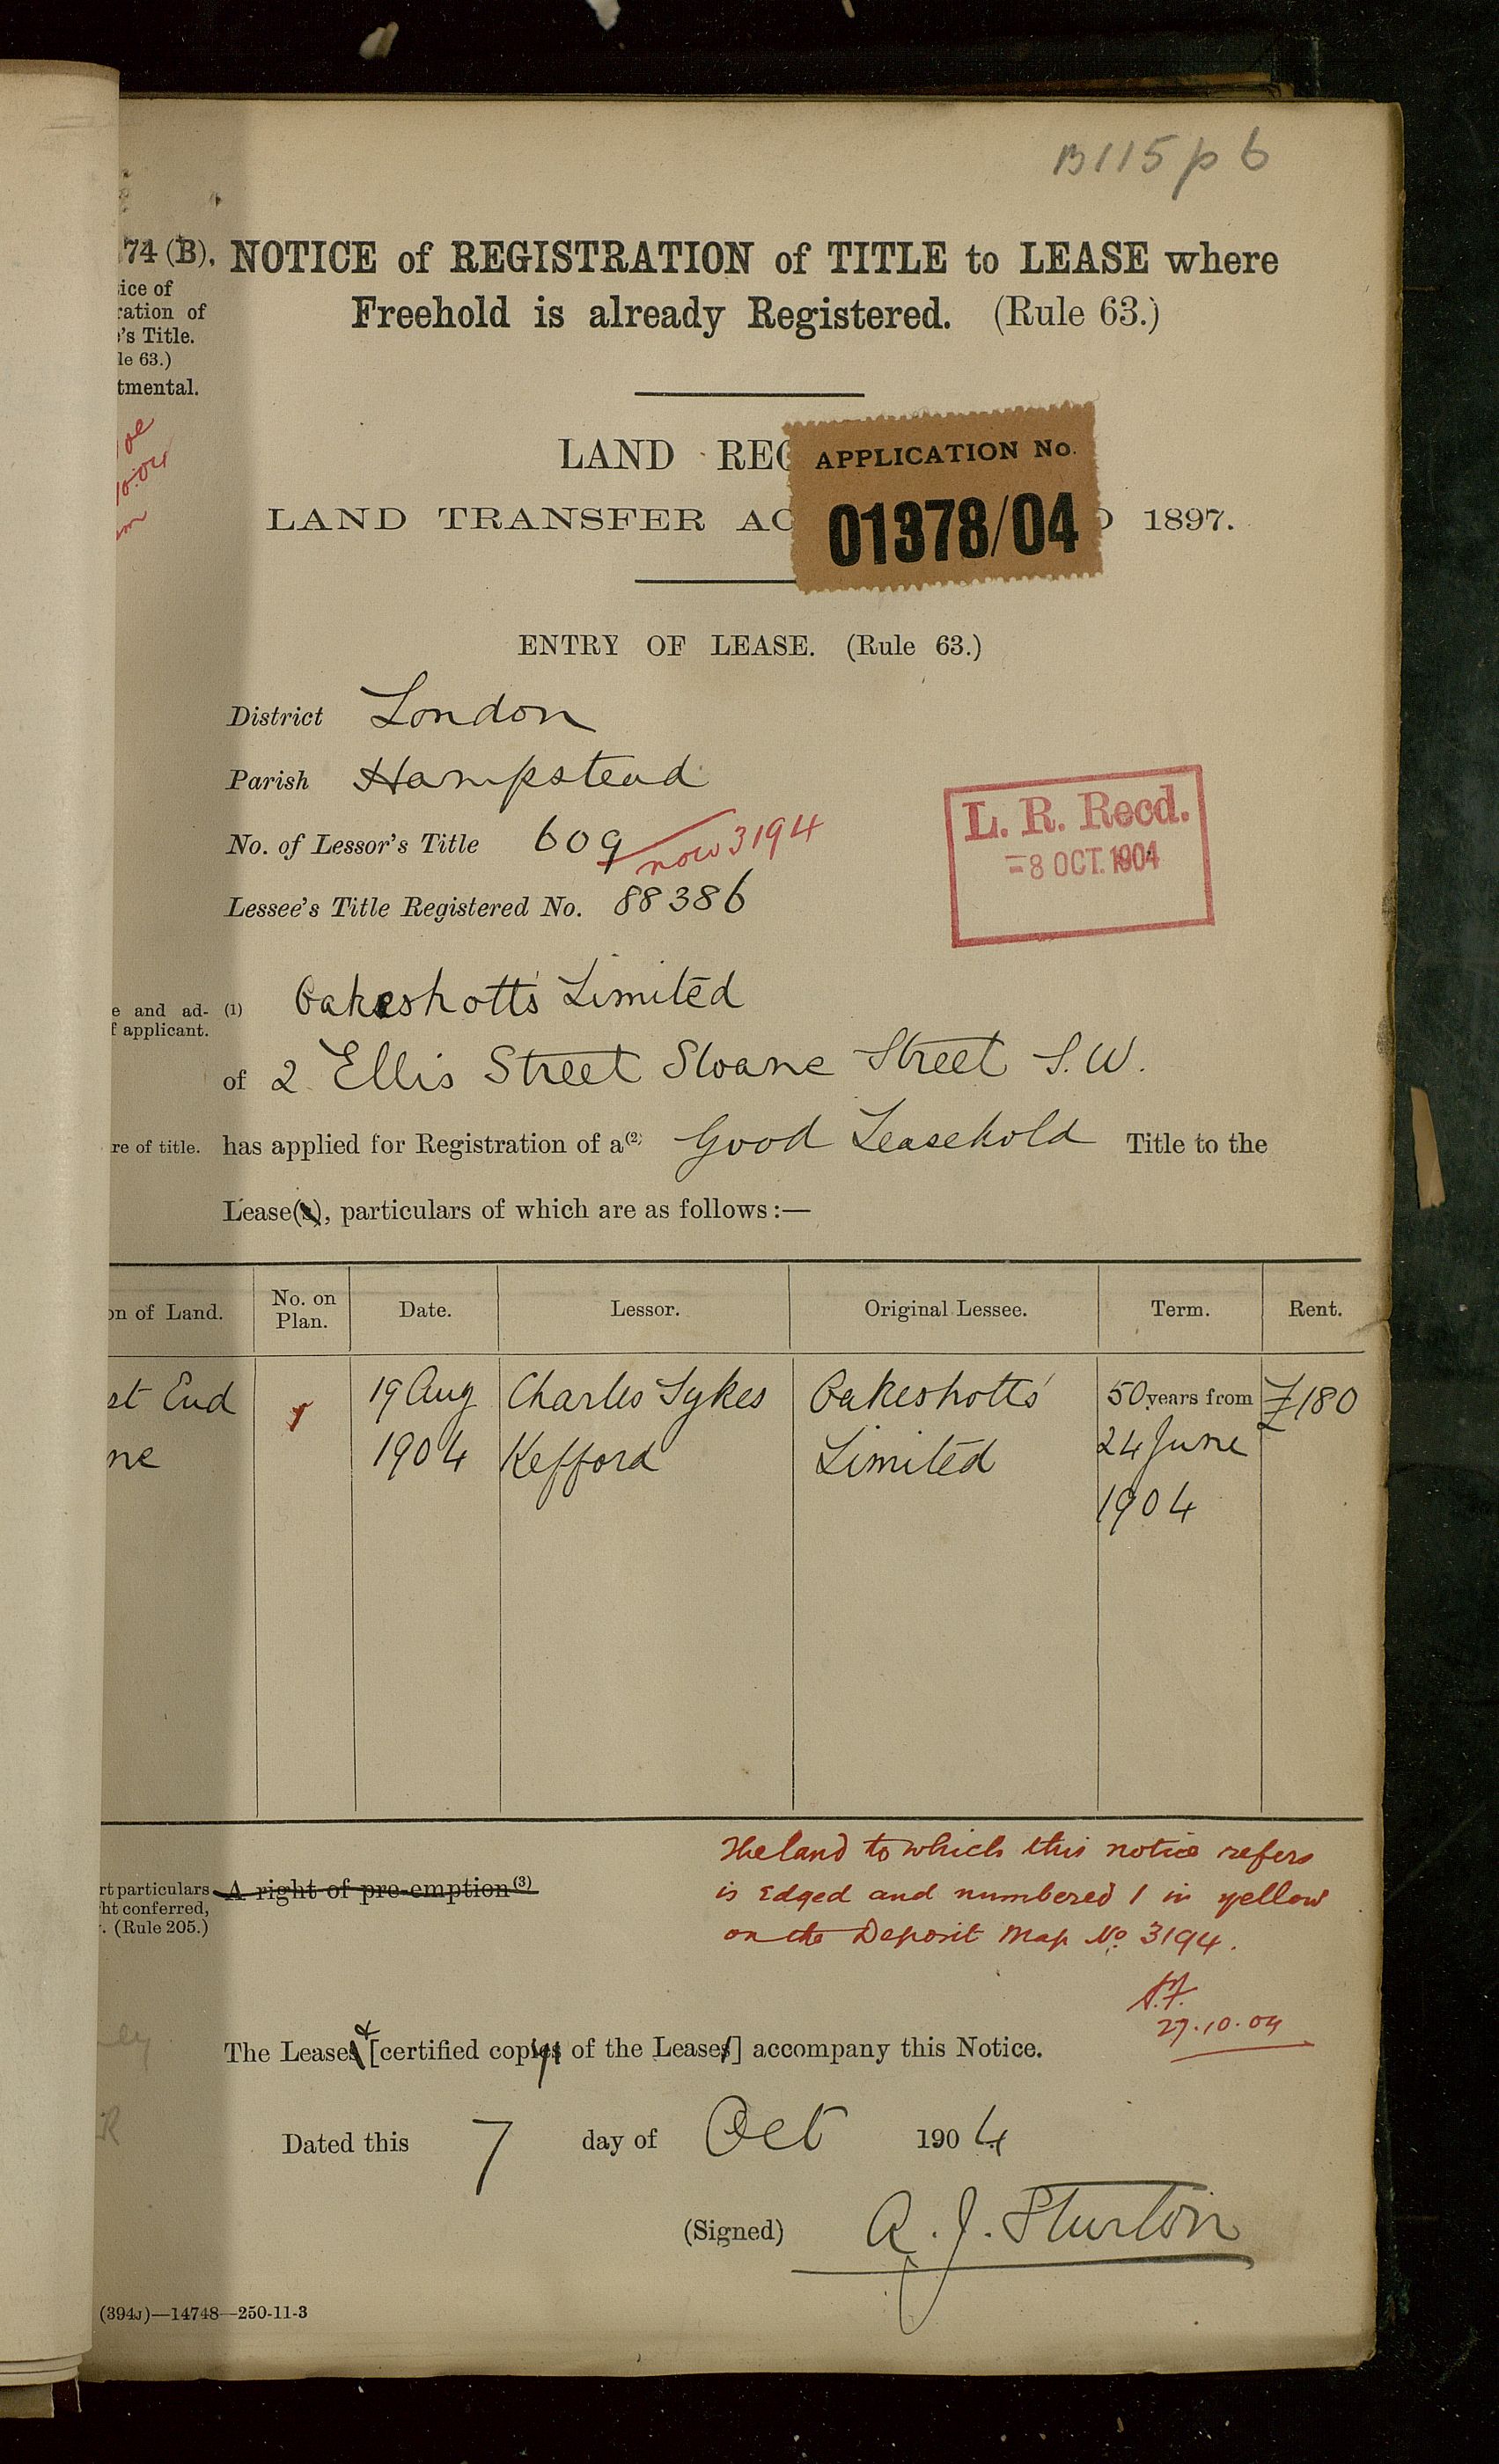 B115 p 6
74 (B). NOTICE of REGISTRATION of TITLE to LEASE where
Freehold is already Registered. (Rule 63.)
ice of
ration of
's Title.
le 63.)
tmental.
LAND REG
APPLICATION No.
01378/04
LAND TRANSFER AC 1897.
ENTRY OF LEASE. (Rule 63.)
District London
Parish Hampstead
No. of Lessor's Title 609 now 3194
Lessee's Title Registered No. 88386
L. R. Recd.
-8 OCT. 1904
e and ad-
f applicant.
(1) Oakeshotts Limited
of 2 Ellis Street Sloane Street S.W.
re of title. has applied for Registration of a (2) Good Leasehold Title to the
Lease(s), particulars of which are as follows :—
on of Land. No. on Plan. Date. Lessor. Original Lessee. Term. Rent.
st End 1 19 Aug Charles Sykes Oakeshotts' 50 years from £180
ne 1904 Kefford Limited 24 June
1904
The land to which this notice refers
is Edged and numbered 1 in yellow
on the Deposit Map No. 3194.
27.10.04
rt particulars
ht conferred,
. (Rule 205.)
A right of pre-emption (3)
The Leases & [certified copies of the Leases] accompany this Notice.
Dated this 7 day of Oct 1904
(Signed) A. J. Sturton
(394J)—14748—250-11-3